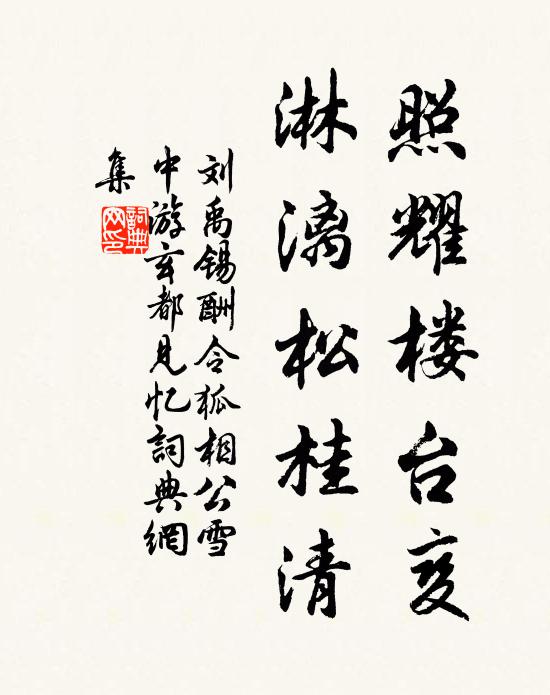 照耀楼台变
淋漓松桂清
刘禹锡酬令狐相公雪
中游玄都见忆詞典網
集
詞典
网印